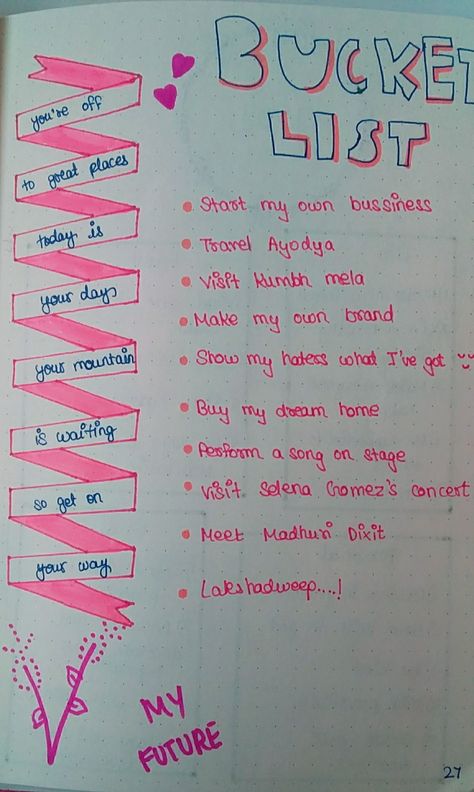 BUCKET
LIST
you're off
to great places
today is
your days
your mountain
is waiting
so get on
your way
Start my own bussiness
Travel Ayodya
Visit kumbh mela
Make my own brand
Show my haters what I've got
Buy my dream home
Perform a song on stage
Visit Selena Gomez's concert
Meet Madhuri Dixit
Lakshadweep....!
MY
FUTURE
27